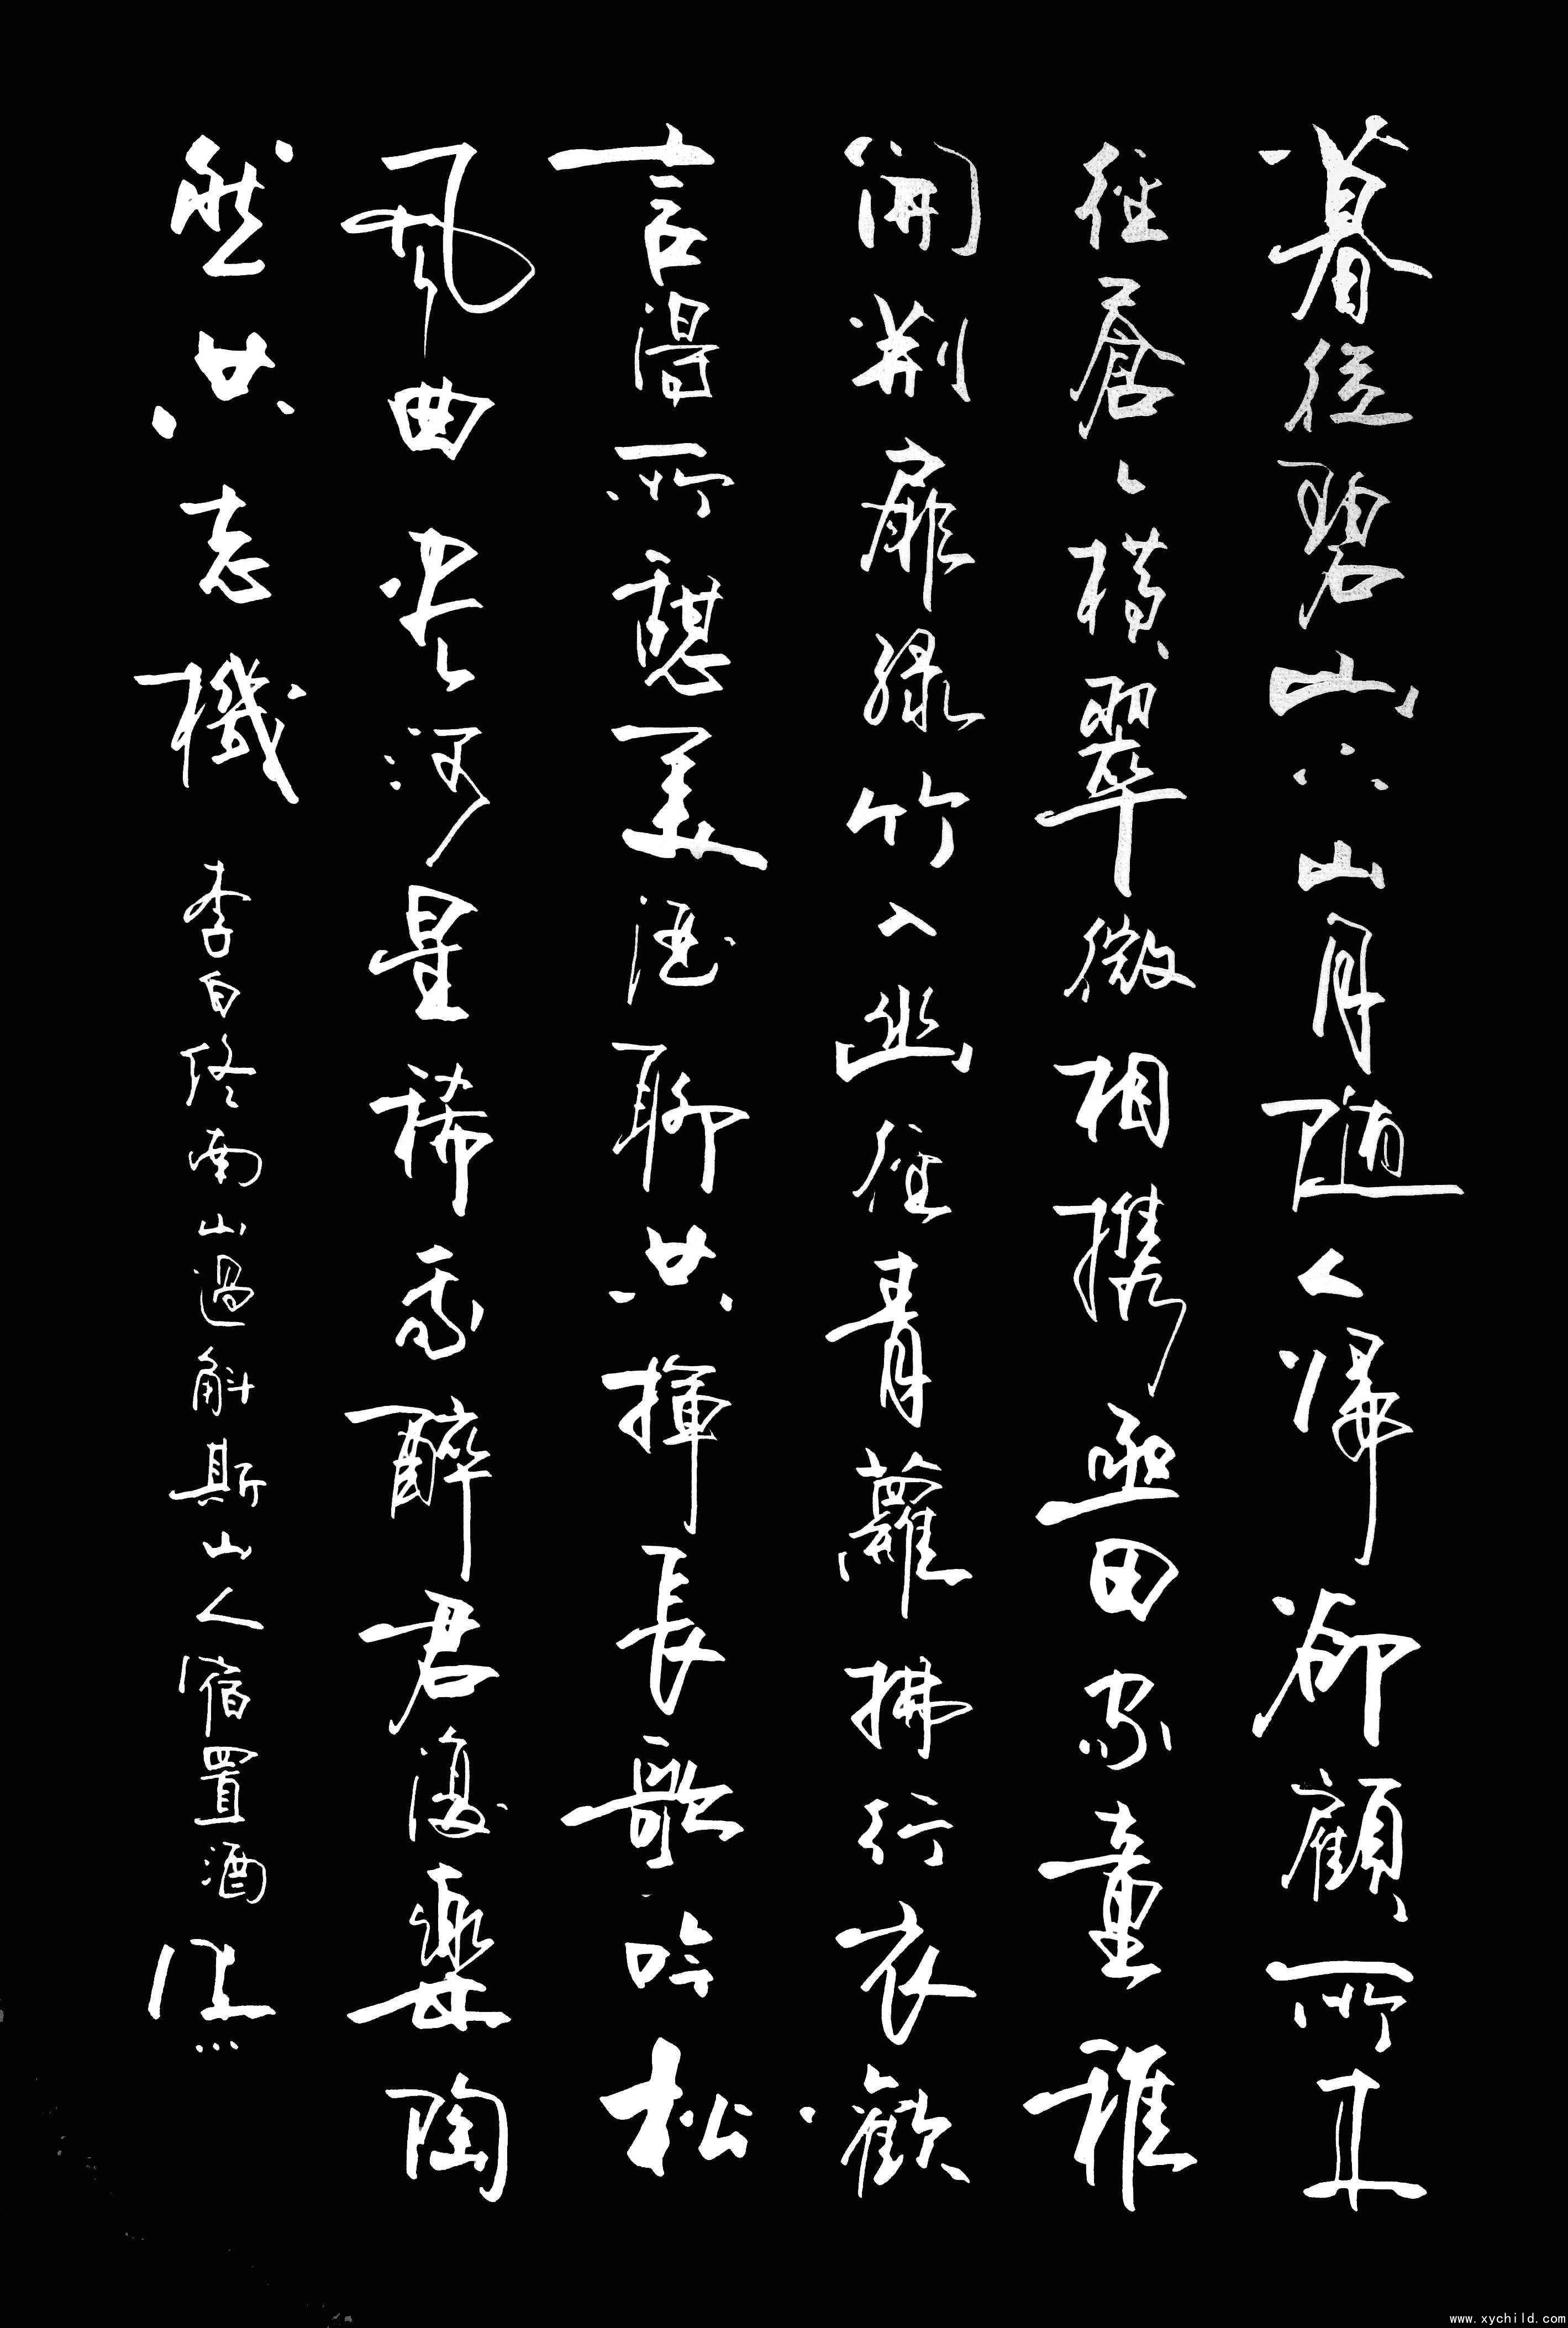 暮從碧山下山月隨人歸卻顧所來
徑蒼々橫翠微相攜亟田家童稚
開荊扉綠竹入幽徑青蘿拂行衣歡
言得所憩美酒聊共揮長歌吟松
風曲盡河星稀我醉君復樂陶
然共忘機 李白終南山過斛斯山人宿置酒
www.xychild.com